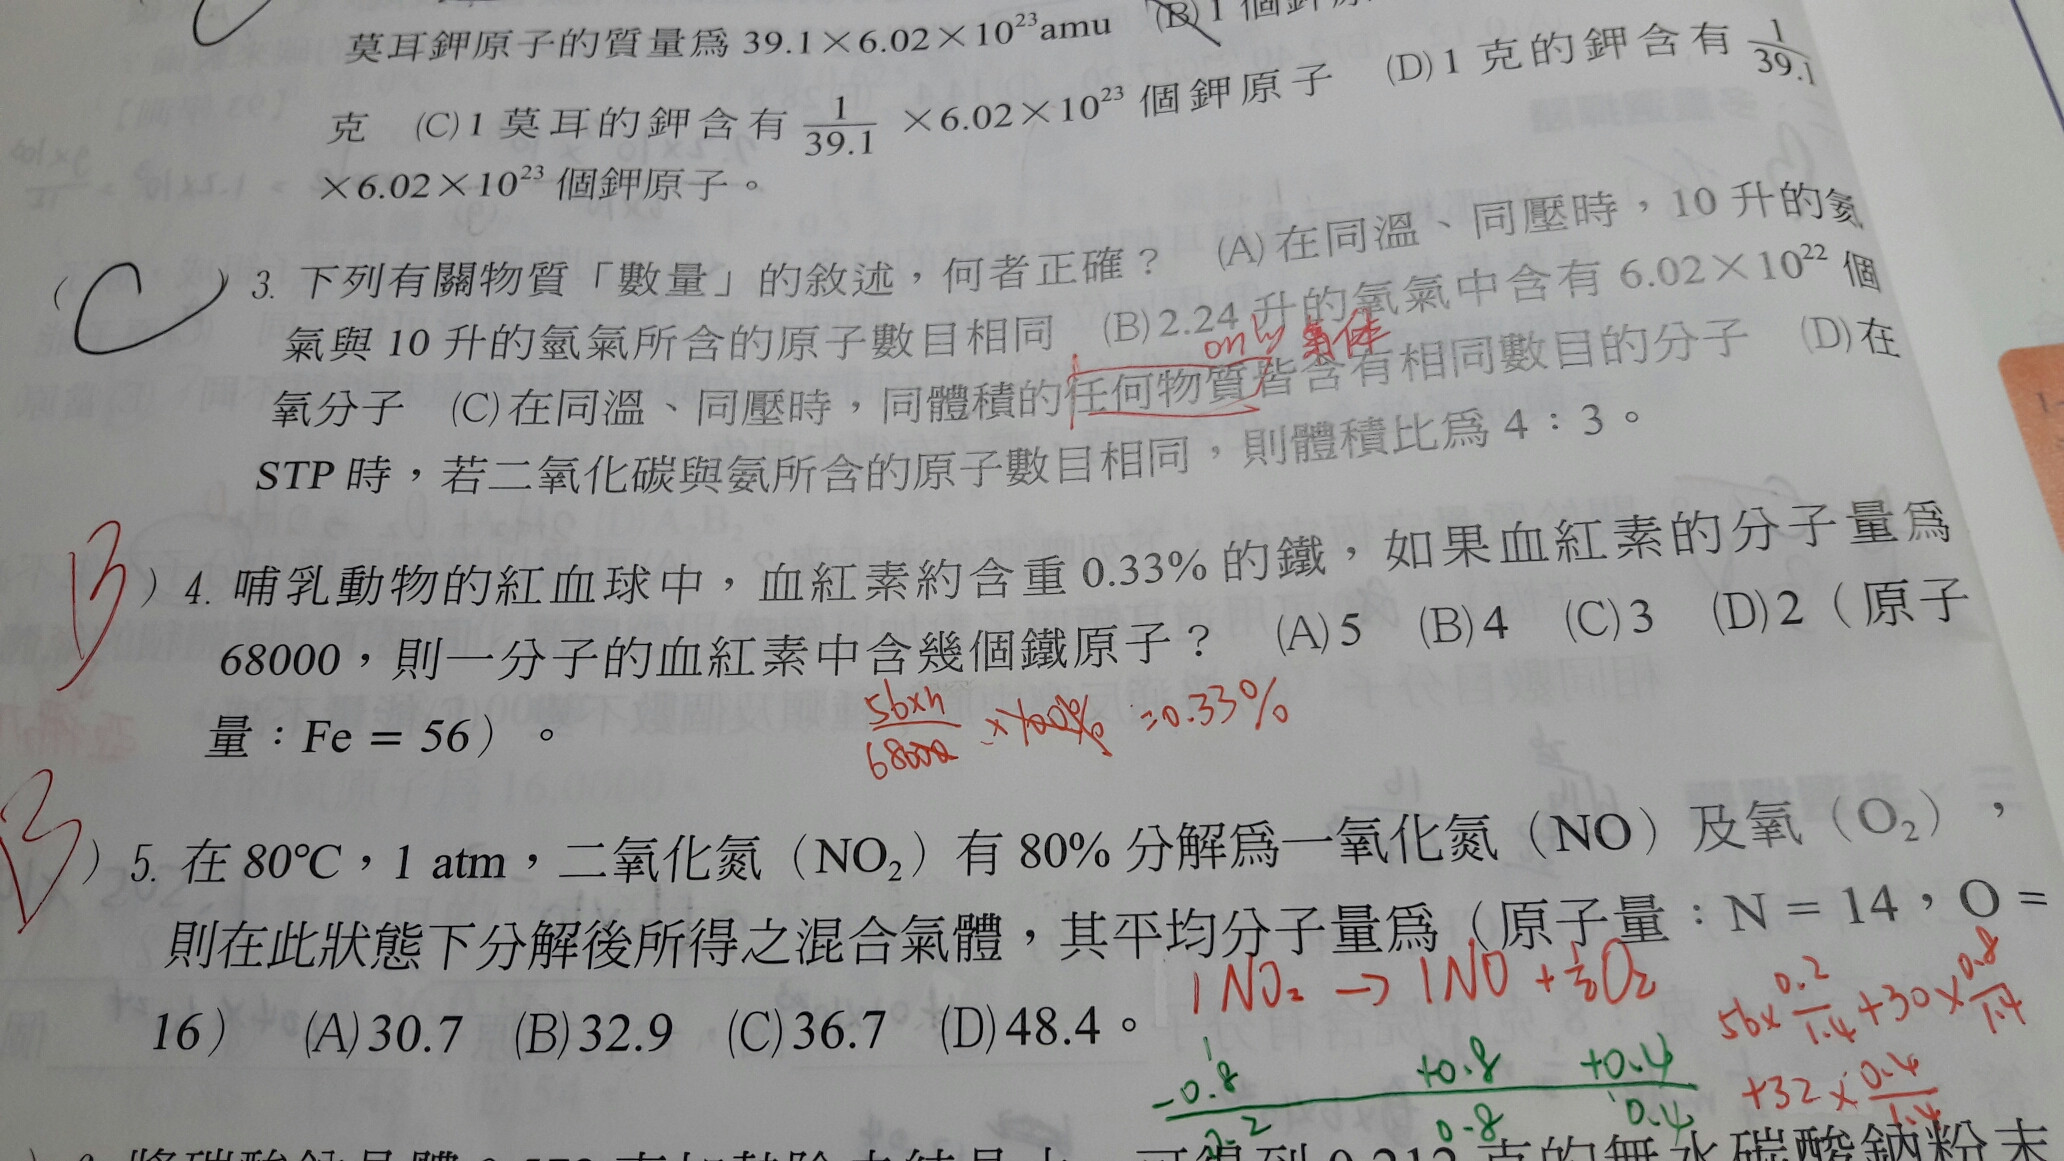 莫耳鉀原子的質量爲 39.1×6.02×10²³amu (B)1 個鉀原
克 (C)1 莫耳的鉀含有 1/39.1 ×6.02×10²³ 個鉀原子 (D)1 克的鉀含有 1/39.1
×6.02×10²³ 個鉀原子。
(C) 3. 下列有關物質「數量」的敘述，何者正確？ (A)在同溫、同壓時，10 升的氦
氣與 10 升的氫氣所含的原子數目相同 (B)2.24 升的氧氣中含有 6.02×10²² 個
only 氣体
氧分子 (C)在同溫、同壓時，同體積的任何物質皆含有相同數目的分子 (D)在
STP 時，若二氧化碳與氨所含的原子數目相同，則體積比爲 4：3。
B) 4. 哺乳動物的紅血球中，血紅素約含重 0.33% 的鐵，如果血紅素的分子量爲
68000，則一分子的血紅素中含幾個鐵原子？ (A)5 (B)4 (C)3 (D)2（原子
量：Fe = 56）。
56×n/68000 ×100% =0.33%
B) 5. 在 80℃，1 atm，二氧化氮（NO₂）有 80% 分解爲一氧化氮（NO）及氧（O₂），
則在此狀態下分解後所得之混合氣體，其平均分子量爲（原子量：N = 14，O =
16） (A)30.7 (B)32.9 (C)36.7 (D)48.4。
1NO₂ → 1NO + ½O₂
56× 0.2/1.4 +30× 0.8/1.4
+32× 0.4/1.4
1
-0.8 +0.8 +0.4
0.2 0.8 0.4